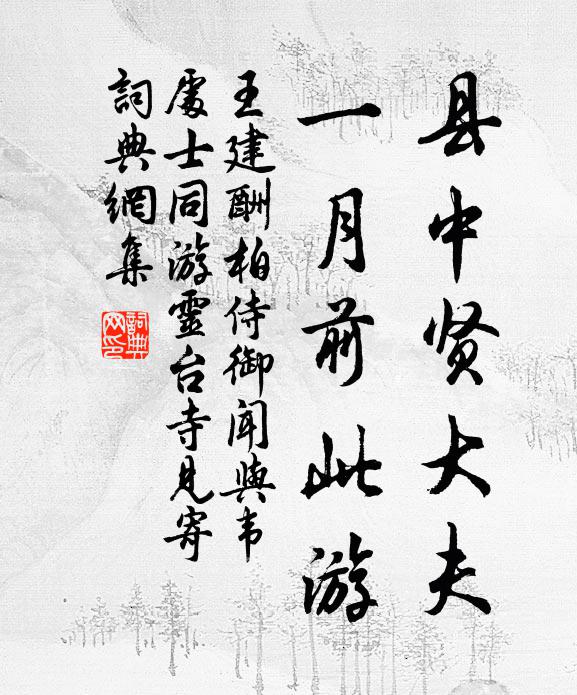 县中贤大夫
一月前此游
王建酬柏侍御闻與韦
處士同游靈台寺见寄
詞典網集
詞典网印